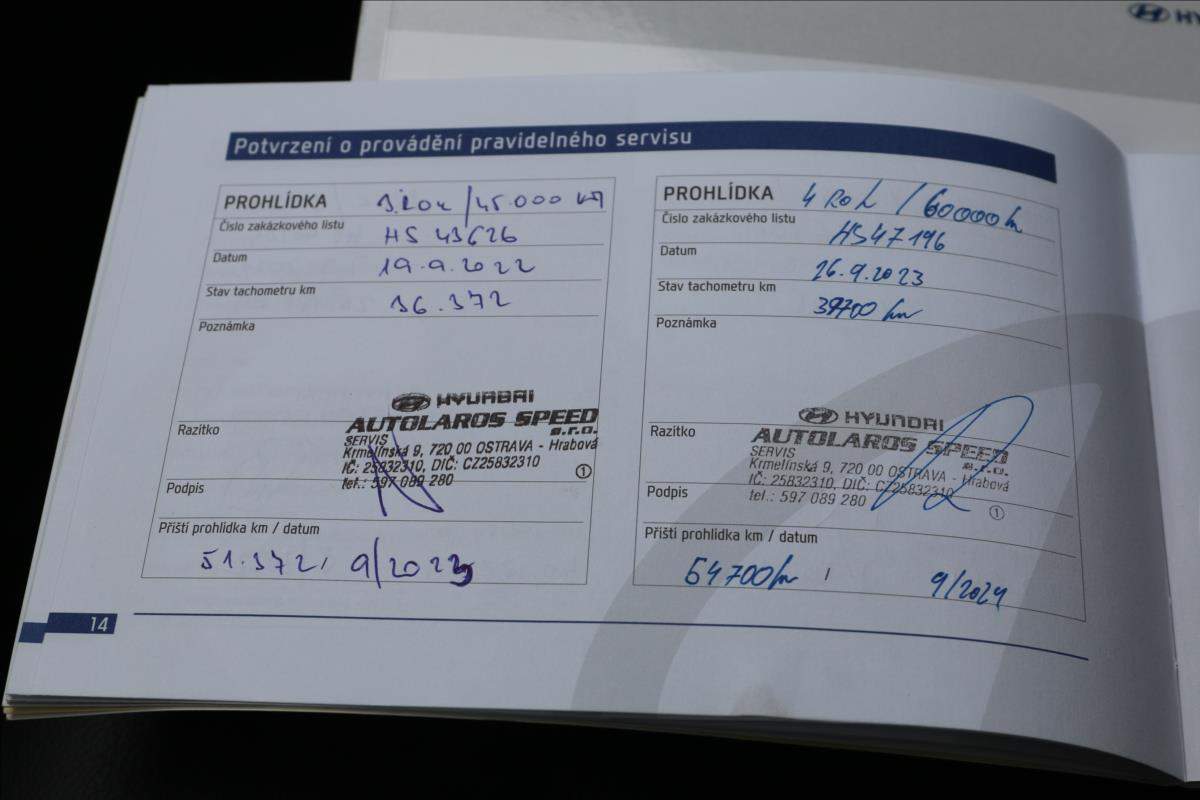 HY
Potvrzení o provádění pravidelného servisu
PROHLÍDKA 3.ROK/45.000 KM
Číslo zakázkového listu HS 43626
Datum 19.9.2022
Stav tachometru km 36.372
Poznámka
Razítko
HYUNDAI
AUTOLAROS SPEED
s.r.o.
SERVIS
Krmelínská 9, 720 00 OSTRAVA - Hrabová
IČ: 25832310, DIČ: CZ25832310
tel.: 597 089 280
1
Podpis
Příští prohlídka km / datum
51.372, 9/2023
PROHLÍDKA 4 ROK / 60000 km
Číslo zakázkového listu HS47196
Datum 26.9.2023
Stav tachometru km 39700 km
Poznámka
Razítko
HYUNDAI
AUTOLAROS SPEED
s.r.o.
SERVIS
Krmelínská 9, 720 00 OSTRAVA - Hrabová
IČ: 25832310, DIČ: CZ25832310
tel.: 597 089 280
1
Podpis
Příští prohlídka km / datum
54700 km / 9/2024
14